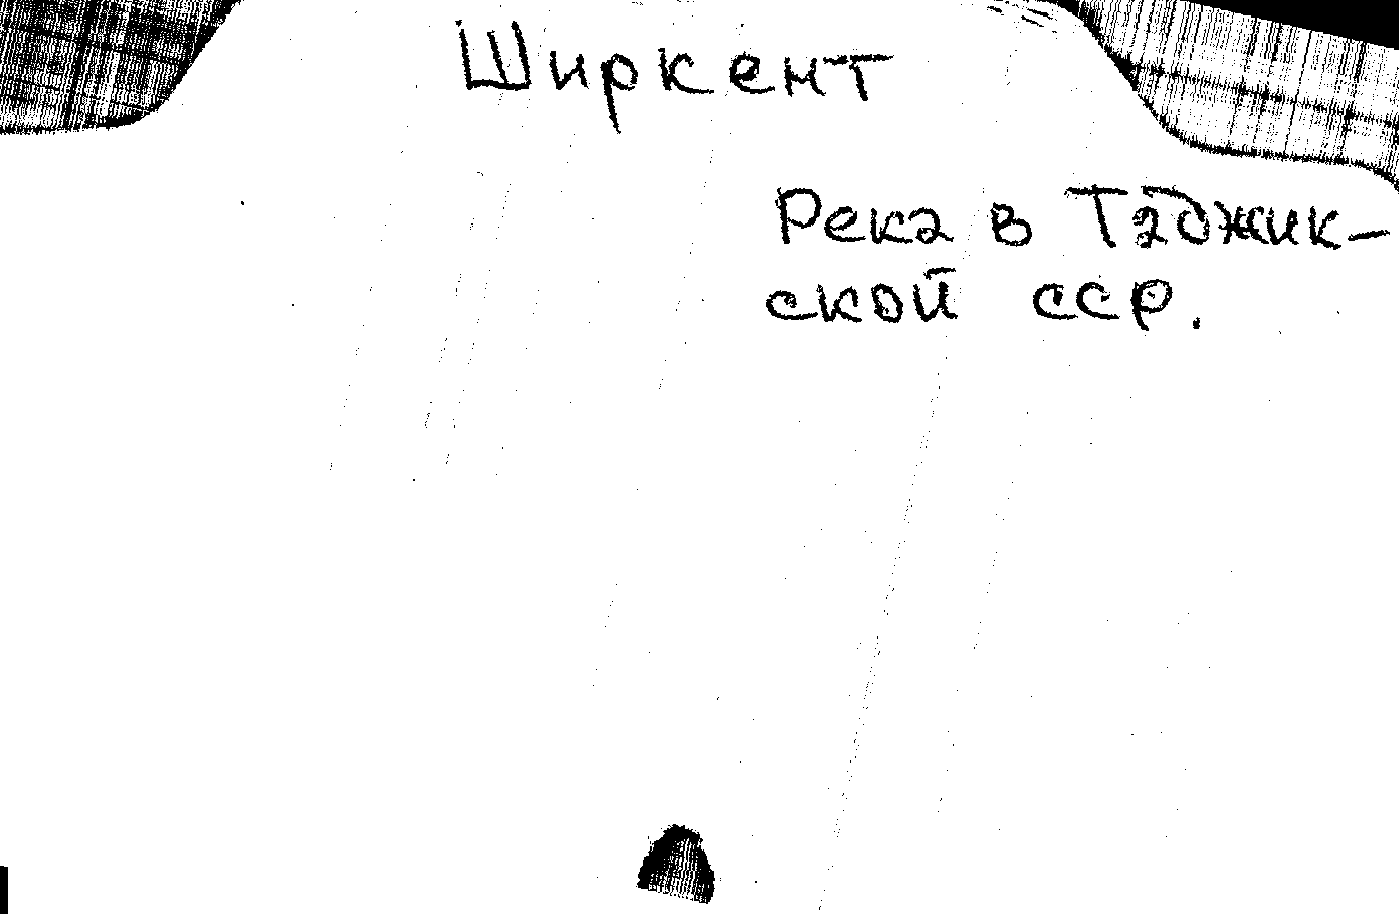 Ширкент
Река в Таджик-
ской сср.